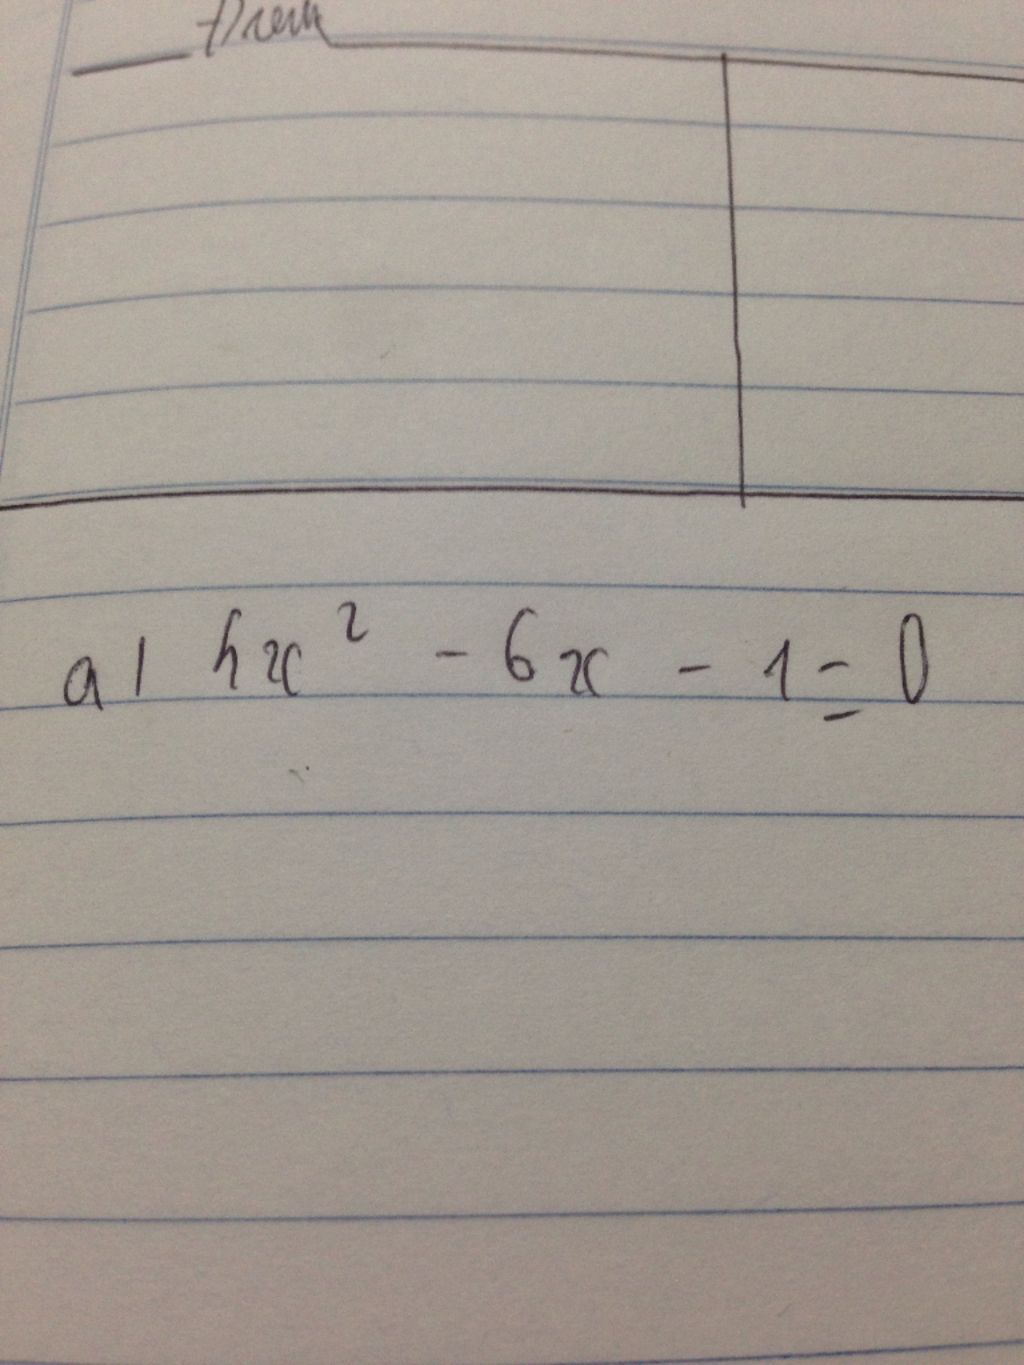 Điểm
a/ 4x² - 6x - 1 = 0